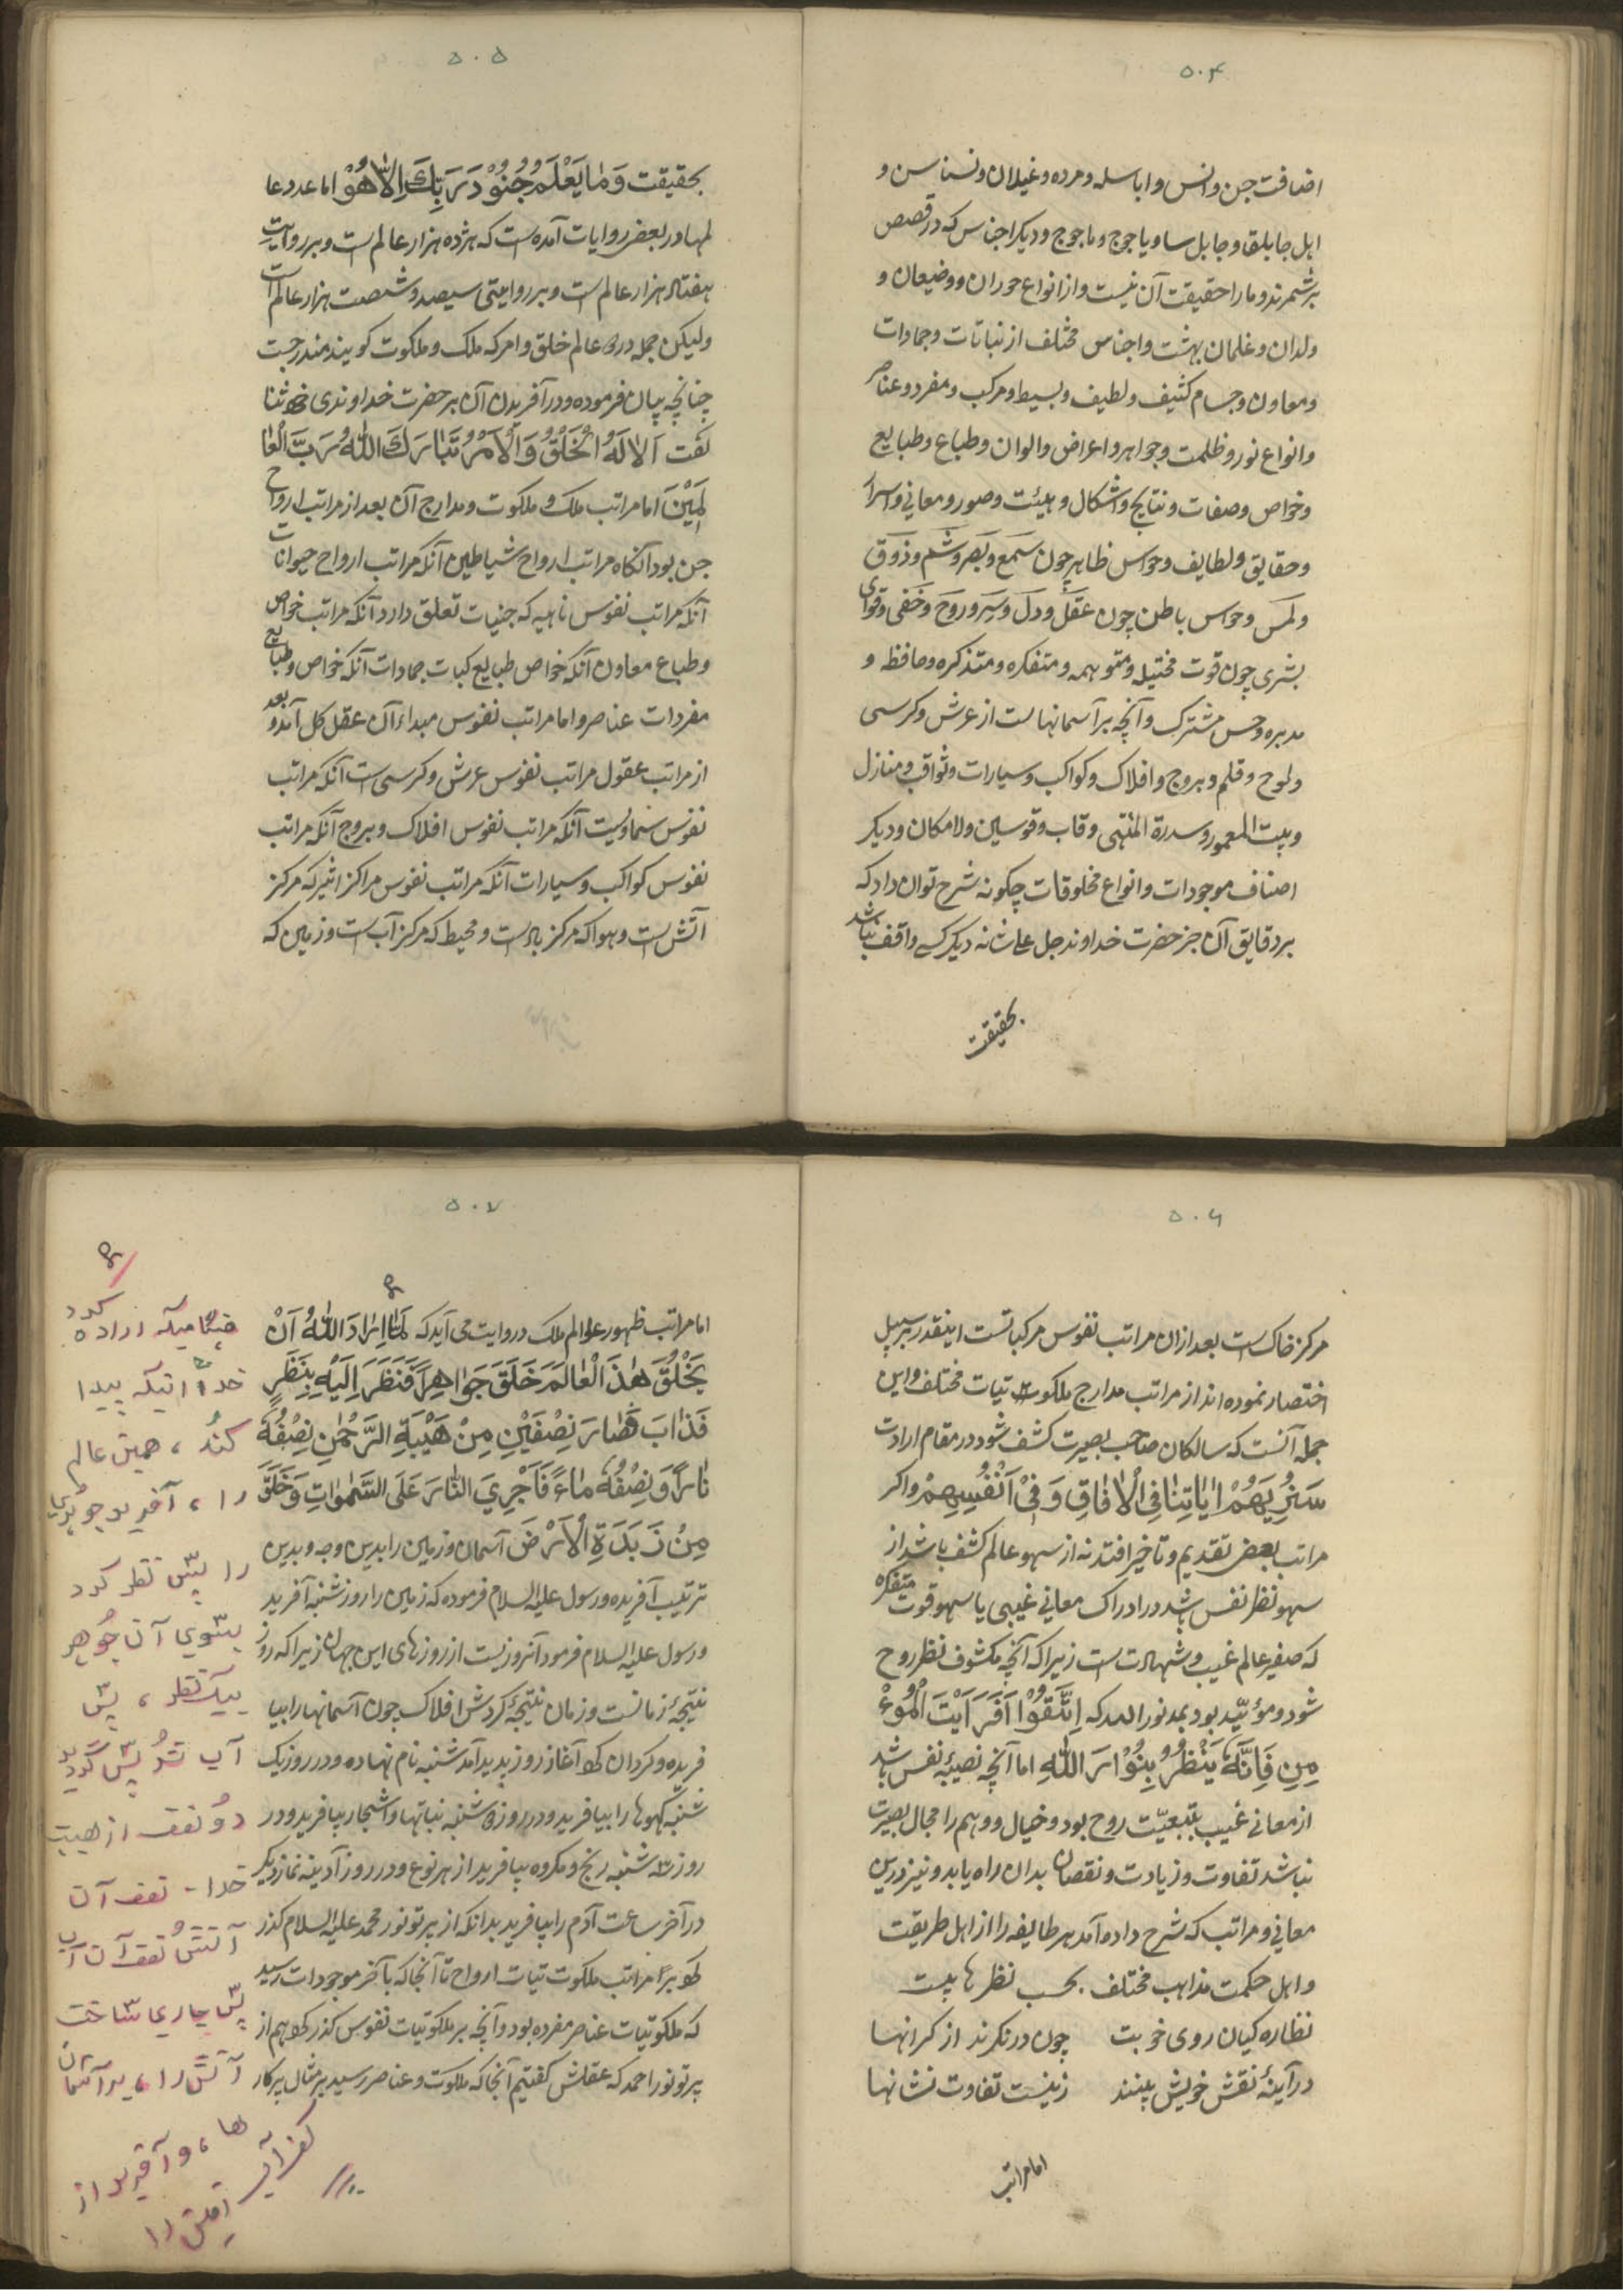 ۵۰۴
اضافت جن وانس وابالسه ومرده وغیلان ونسناس و
اهل جابلقا وجابل سا ویاجوج وماجوج ودیکر اجناس که در قصص
برشمرند ومارا حقیقت آن نیست واز انواع حوران ووضیعان و
ولدان وغلمان بهشت واجناس مختلف از نباتات وجمادات
ومعاون وجسام کثیف ولطیف وبسیط ومرکب ومفرد وعناصر
وانواع نور وظلمت وجواهر واعراض والوان وطباع وطبایع
وخواص وصفات ونتایج واشکال وهیئت وصور ومعانی واسرار
وحقایق ولطایف وحواس ظاهر چون سمع وبصر وشم وذوق
ولمس وحواس باطن چون عقل ودل وسر وروح وخفی وقوای
بشری چون قوت مختیله ومتوهمه ومتفکره ومتذکره وحافظه و
مدبره وحس مشترک وآنچه بر آسمانهاست از عرش وکرسی
ولوح وقلم وبروج وافلاک وکواکب وسیارات وثواقب ومنازل
وبیت المعمور وسدرة المنتهی وقاب وقوسین ولامکان ودیکر
اصناف موجودات وانواع مخلوقات چکونه شرح توان داد که
بر دقایق آن جز حضرت خداوند جل علا شانه دیکر کسی واقف نباشد
بحقیقت
۵۰۵
بحقیقت وَمٰا یَعْلَمُ جُنُوْدَ رَبِّكَ اِلّاٰ هُوْ اما عدد عا
لمها در بعضی روایات آمده است که هژده هزار عالم است وبر روایت
هفتاد هزار عالم است وبر روایتی سیصد وشصت هزار عالم است
ولیکن جمله در دو عالم خلق وامر که ملک وملکوت کویند مندرجست
چنانچه بیان فرموده ودر آفریدن آن بر حضرت خداوندی خود ثنا
کفت اَلاٰ لَهُ الْخَلْقُ وَالْاَمْرُ تَبٰارَكَ اللّٰهُ رَبَّ الْعٰا
لَمِیْنَ اما مراتب ملک وملکوت ومدارج آن بعد از مراتب ارواح
جن بود آنکاه مراتب ارواح شیاطین آنکه مراتب ارواح حیوانات
آنکه مراتب نفوس نامیه که جنبات تعلق دارد آنکه مراتب خواص
وطباع معاون آنکه خواص طبایع کبات جمادات آنکه خواص وطبایع
مفردات عناصر واما مراتب نفوس مبداء آن عقل کل آمد وبعد
از مراتب عقول مراتب نفوس عرش وکرسی است آنکه مراتب
نفوس سماویست آنکه مراتب نفوس افلاک وبروج آنکه مراتب
نفوس کواکب وسیارات آنکه مراتب نفوس مراکز اثیر که مرکز
آتش است وهوا که مرکز باد است ومحیط که مرکز آب است وزمین که
۵۰۶
مرکز خاک است بعد از ان مراتب نفوس مرکباتست اینقدر بر سبیل
اختصار نموده اند از مراتب مدارج ملکوتیات مختلف واین
جمله آنست که سالکان صاحب بصیرت کشف شود در مقام ارادت
سَنُرِیَهُمْ اٰیٰاتِنٰا فِی الْاٰفٰاقِ وَ فِیْ اَنْفُسِهِمْ واکر
مراتب بعضی تقدیم وتاخیر افتد نه از سهو عالم کشف باشد از
سهو نظر نفس باشد در ادراک معانی غیبی یا سهو قوت متفکره
که صفیر عالم غیب وشهادتست زیرا که آنچه مکشوف نظر روح
شود ومؤیّد بود بمدد نور الله که اِتَّقُوْا اَفَرَاَیْتَ الْمُوءْ
مِنِ فَاِنَّهُ یَنْظُرُ بِنُوْارَ اللّٰهِ اما آنچه نصیبه نفس باشد
از معانی غیب بتبعیّت روح بود وخیال ووهم را مجال بصیرت
نباشد تفاوت وزیادت ونقصان بدان راه یابد ونیز درین
معانی ومراتب که شرح داده آمد هر طایفه را از اهل طریقت
واهل حکمت مذاهب مختلف بحسب نظرها بیست
نظاره کیان روی خوبت چون در نکرند از کرانها
در آینهٔ نقش خویش بینند زینست تفاوت نشانها
اما مراتب
۵۰۷
اما مراتب ظهور عوالم ملک در روایت می آید که لَمّٰا اِرٰادَ اللّٰهُ اَنْ
یَخْلُقَ هٰذَ الْعٰالَمَ خَلَقَ جَوٰاهِراً فَنَظَرَ اِلَیْهِ بِنَظَرٍ
فَذٰابَ فَصٰارَ نِصْفَیْنِ مِنْ هَیْبَةِ الرَّحْمٰنِ نِصْفُهُ
نٰاراً وَ نِصْفُهُ مٰاءً فَاَجْرِیَ النّٰارَ عَلَی السَّمٰوٰاتِ وَخَلَقَ
مِنْ زَبَدَةِ الْاَرْضَ آسمان وزمین را بدین وجه وبدین
ترتیب آفریده ورسول علیه السلام فرموده که زمین را روز شنبه آفرید
ورسول علیه السلام فرمود آنروز نیست از روزهای این جهان زیرا که روز
نتیجهٔ زمانست وزمان نتیجهٔ کردش افلاک چون آسمانها را بیا
فریده وکردان کرد آغاز روز پدید آمد شنبه نام نهاده ودر روز یک
شنبه کوهها را بیافرید ودر روز دوشنبه نباتها واشجار بیافرید ودر
روز سه شنبه رنج ومکروه بیافرید از هر نوع ودر روز آدینه نماز دیکر
در آخر ساعت آدم را بیافرید بدانکه از پرتو نور محمد علیه السلام کذر
کرد بر مراتب ملکوتیات ارواح تا آنجا که بآخر موجودات رسید
که ملکوتیات عناصر مفرده بود وآنچه بر ملکوتیات نفوس کذر کرد هم از
پرتو نور احمد که عقلش کفتیم آنجا که ملکوت وعناصر رسید بر مثال پرکار
هنگامیکه اراده کرد
خدا، اینکه پیدا
کند، همین عالم
را، آفرید جوهری
را پس نظر کرد
بسوی آن جوهر
بیک نظر، پس
آب شد پس گردید
دو نصف از هیبت
خدا - نصف آن
آتش نصف آن آب
پس جاری ساخت
آتش را، بر آسمان
ها، و آفرید از
کف آب
زمین را